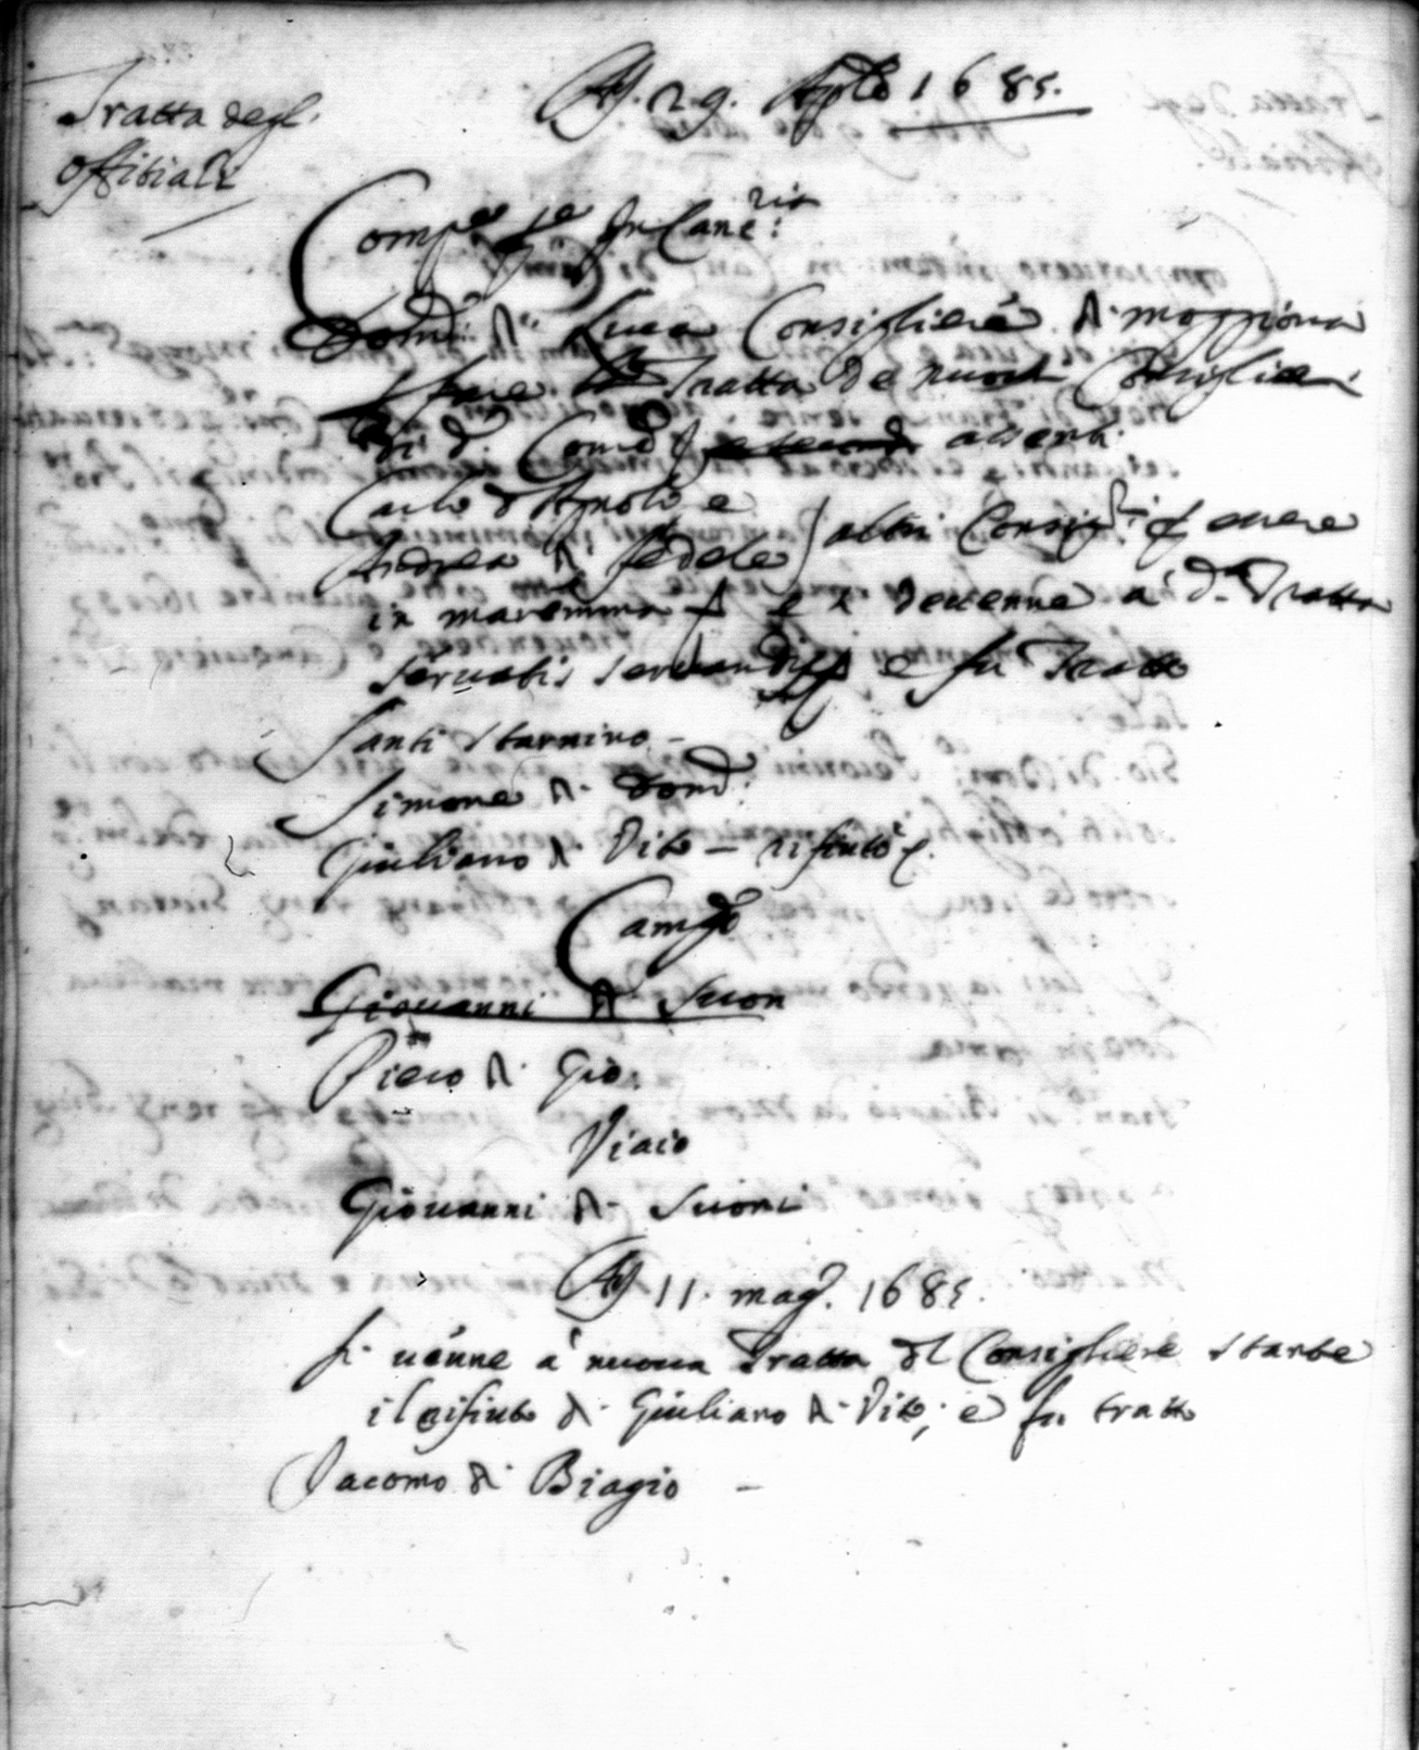 Tratta degl.
Offitiali
Ad. 29. Aple 1685.
Comp.e in Canc.ria
Dom.co di Luca Consigliere di moggiona
fare Tratta de nuovi Consiglieri
di d. Com.o assenti
Carlo d'Agnolo e
Andrea di fedele altri Consig.ri essere
in maremma e si devenne a d.a Tratta
servatis servandis e fu Tratto
Santi Starnino -
Simone di Dom.
Giuliano di Vito - rifiutò
Camgo
Giovanni di Simon
Piero di Gio:
Viaio
Giovanni di Simoni
Ad 11. mag. 1685.
Si uenne a nuoua Tratta del Consigliere stante
il rifiuto di Giuliano di Vito; e fu tratto
Jacomo di Biagio -